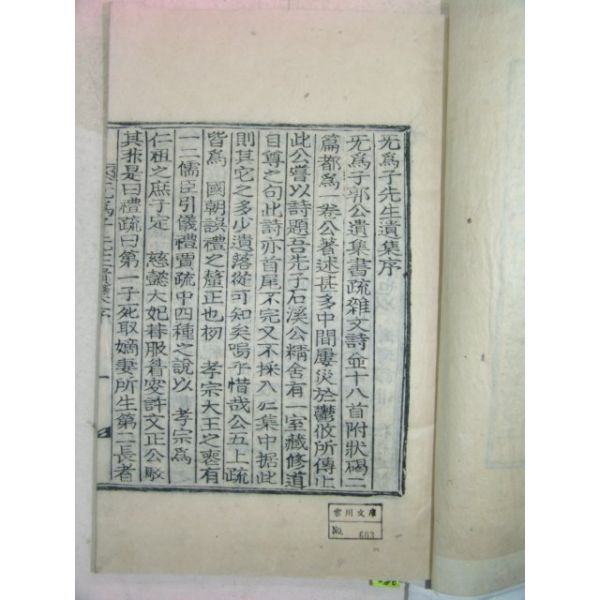 无爲子先生遺集序
无爲子郭公遺集書疏雜文詩並十八首附狀碣二
篇都爲一卷公著述甚多中間屢災於鬱攸所傳止
此公嘗以詩題吾先子石溪公精舍有一室藏修道
自尊之句此詩亦首尾不完又不採入於集中据此
則其它之多少遺落從可知矣嗚乎惜哉公五上疏
皆爲 國朝誤禮之釐正也初 孝宗大王之喪有
一二儒臣引儀禮賈疏中四種之說以 孝宗爲
仁祖之庶子定 慈懿大妃朞服眉叟許文正公駁
其非是曰禮疏曰第一子死取嫡妻所生第二長者
无爲子先生遺集序 一
雲川文庫
No. 683